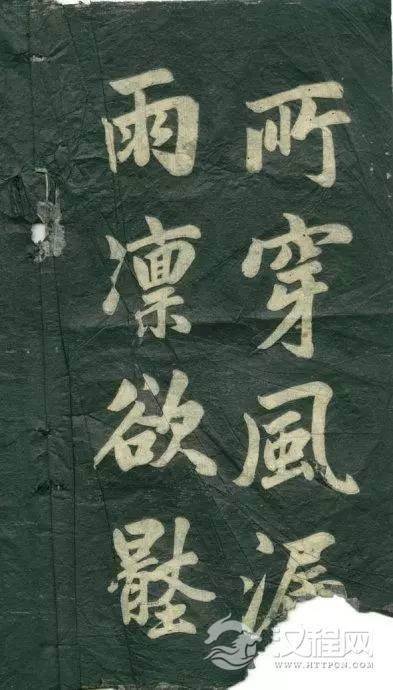 所穿風
雨凛欲
汉程网
WWW.HTTPCN.COM